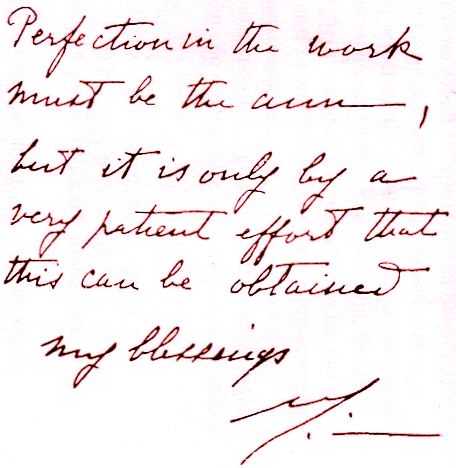 Perfection in the work
must be the aim,
but it is only by a
very patient effort that
this can be obtained
my blessings